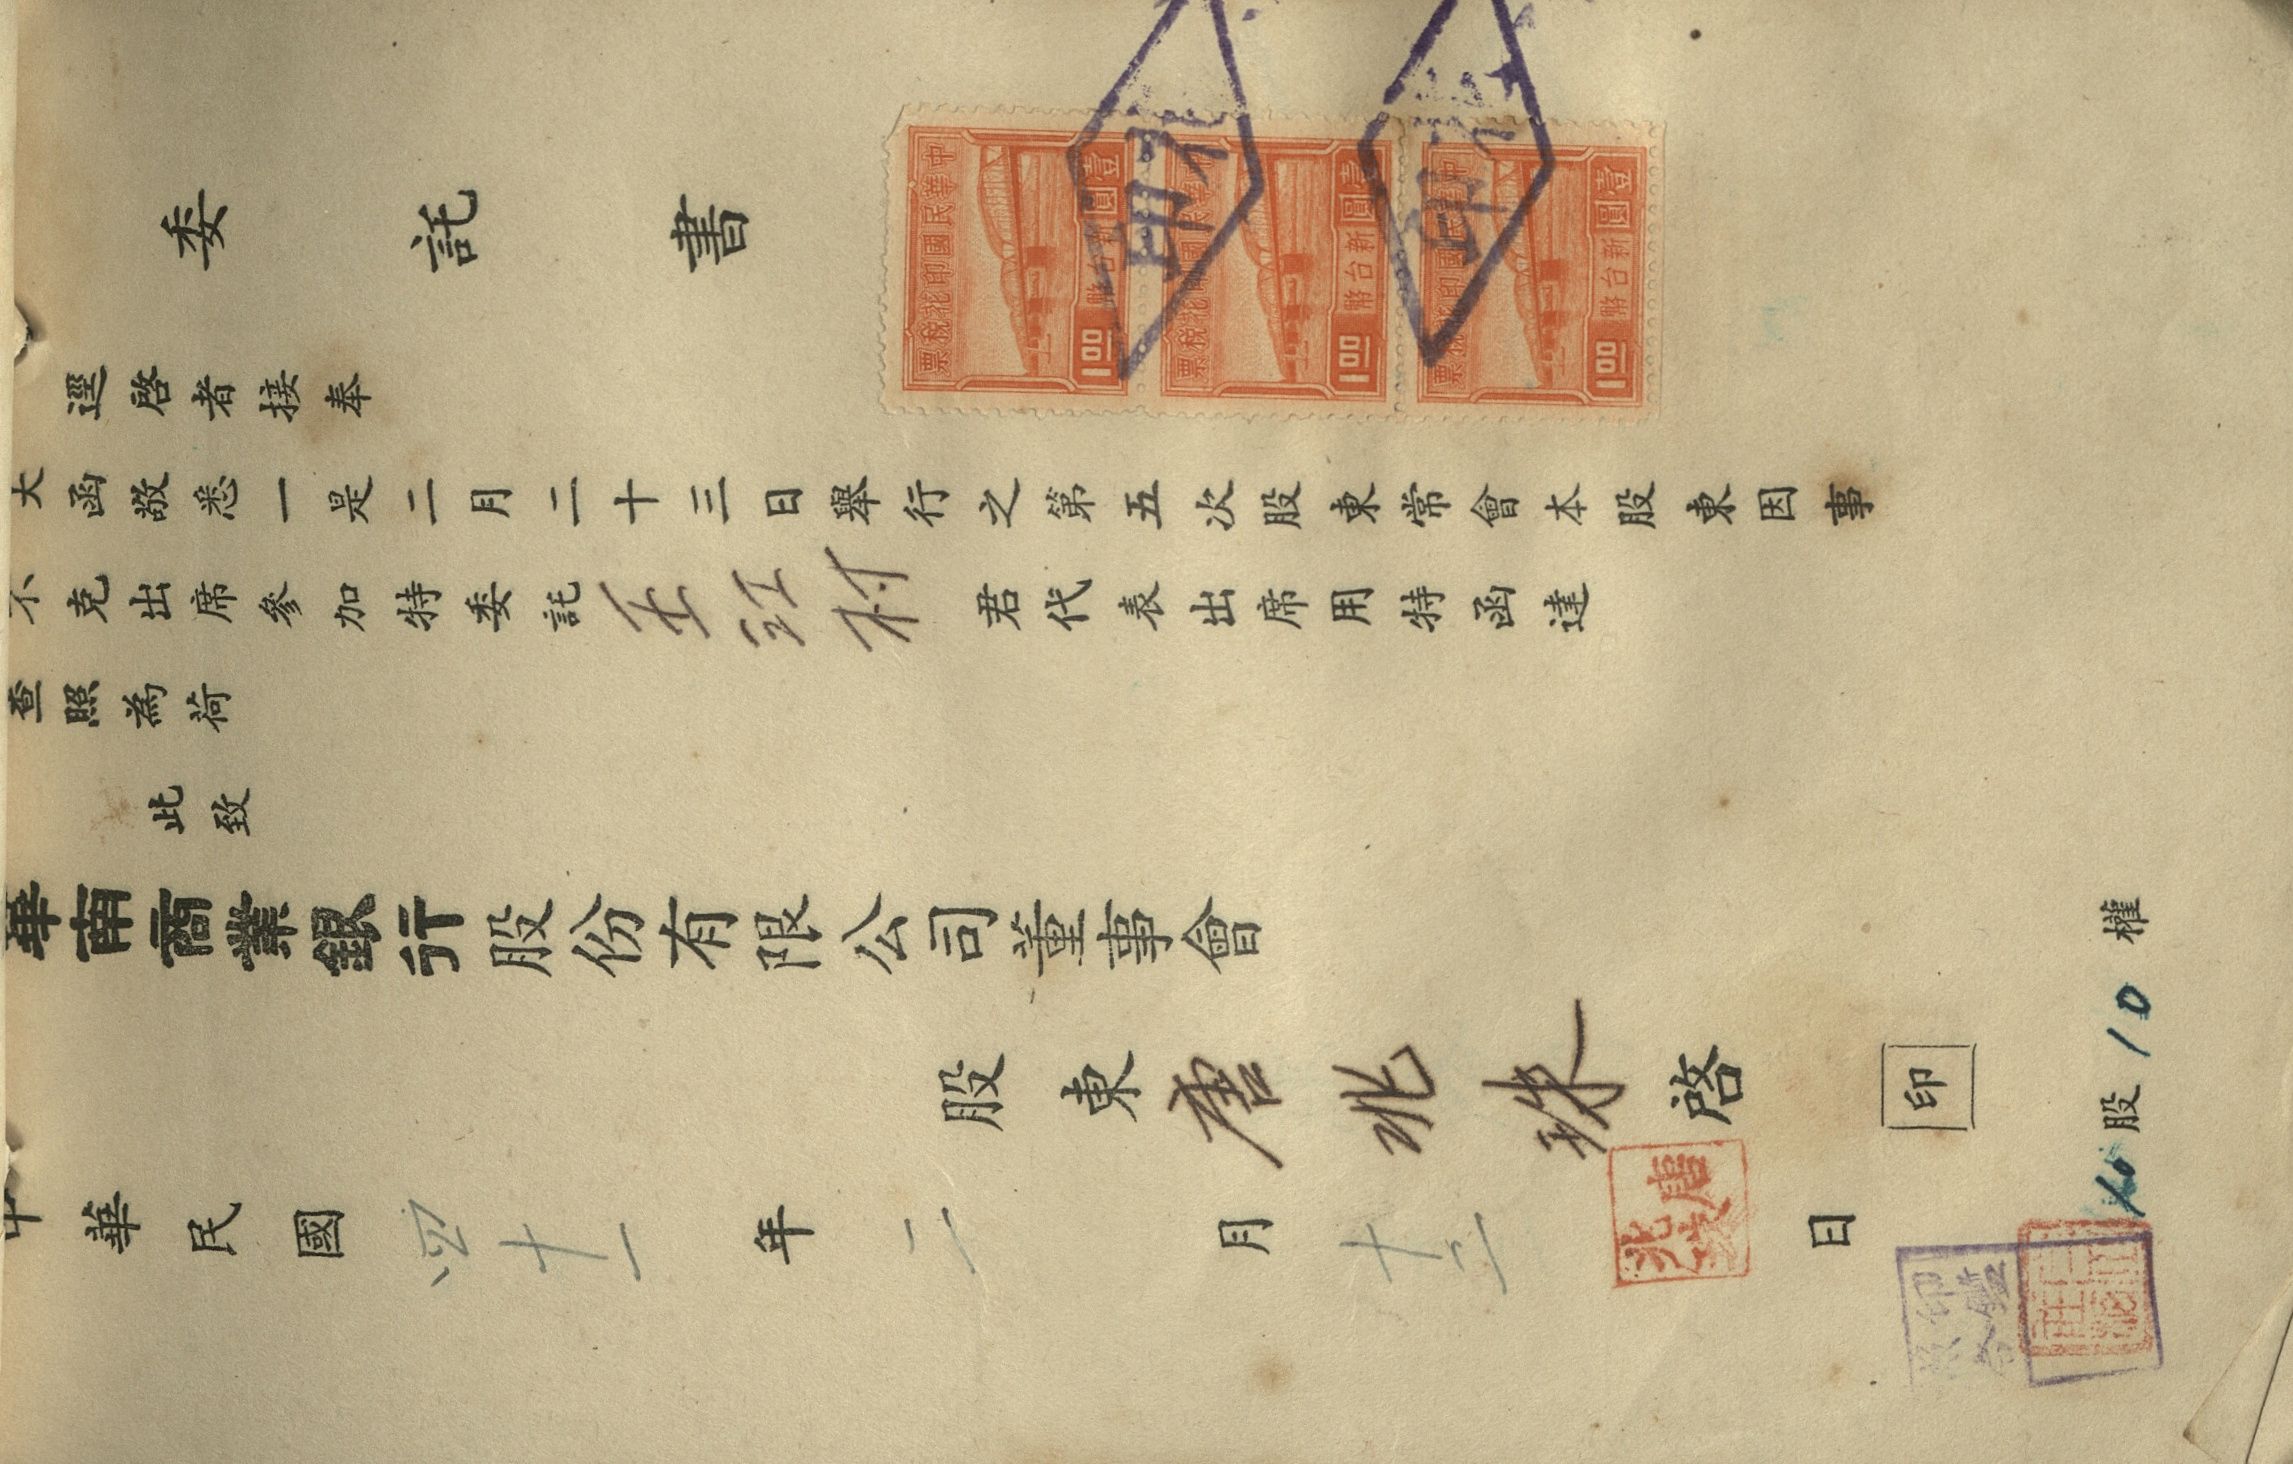 委託書
逕啓者接奉
大函敬悉一是二月二十三日舉行之第五次股東常會本股東因事
不克出席參加特委託王江村君代表出席用特函達
查照為荷
此致
華南商業銀行股份有限公司董事會
股東唐兆珠啓 印
中華民國四十一年二月十二日
10股10權
中華民國印花稅票
壹圓 新台幣 1.00
中華民國印花稅票
壹圓 新台幣 1.00
中華民國印花稅票
壹圓 新台幣 1.00
唐兆珠